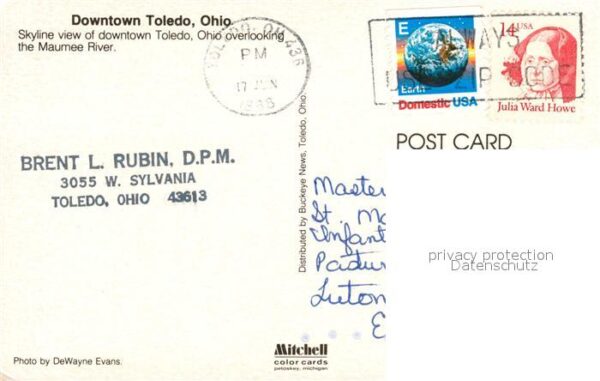 Downtown Toledo, Ohio.
Skyline view of downtown Toledo, Ohio overlooking
the Maumee River.
TOLEDO, OH 436
PM
17 JUN
1988
E
Earth
Domestic USA
14
USA
Julia Ward Howe
ALWAYS
USE ZIP CODE
POST CARD
BRENT L. RUBIN, D.P.M.
3055 W. SYLVANIA
TOLEDO, OHIO 43613
Distributed by Buckeye News, Toledo, Ohio
Master
St. M
Infant
Padu
Luton
E
privacy protection
Datenschutz
Photo by DeWayne Evans.
Mitchell
color cards
petoskey, michigan